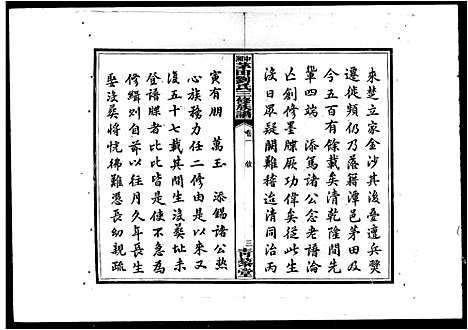 來楚立家金沙其后疊遭兵燹
遷徙頻仍乃落籍潭邑茅田及
今五百有餘載矣清乾隆間先
輩四端 添篤諸公念老譜淪
亡創修墨牒厥功偉矣從此生
沒日眾疑闕難稽迨清同治丙
茅田劉氏三修族譜
卷一 敘
三
青藜堂
寅有朋 萬玉 添錫諸公熱
心族務力任二修由是以來又
復五十七載其間生沒葬址未
登譜牒者比比皆是使不急為
修緝則自茲以往月久年長生
娶沒葬將恍徘難憑長幼親疏